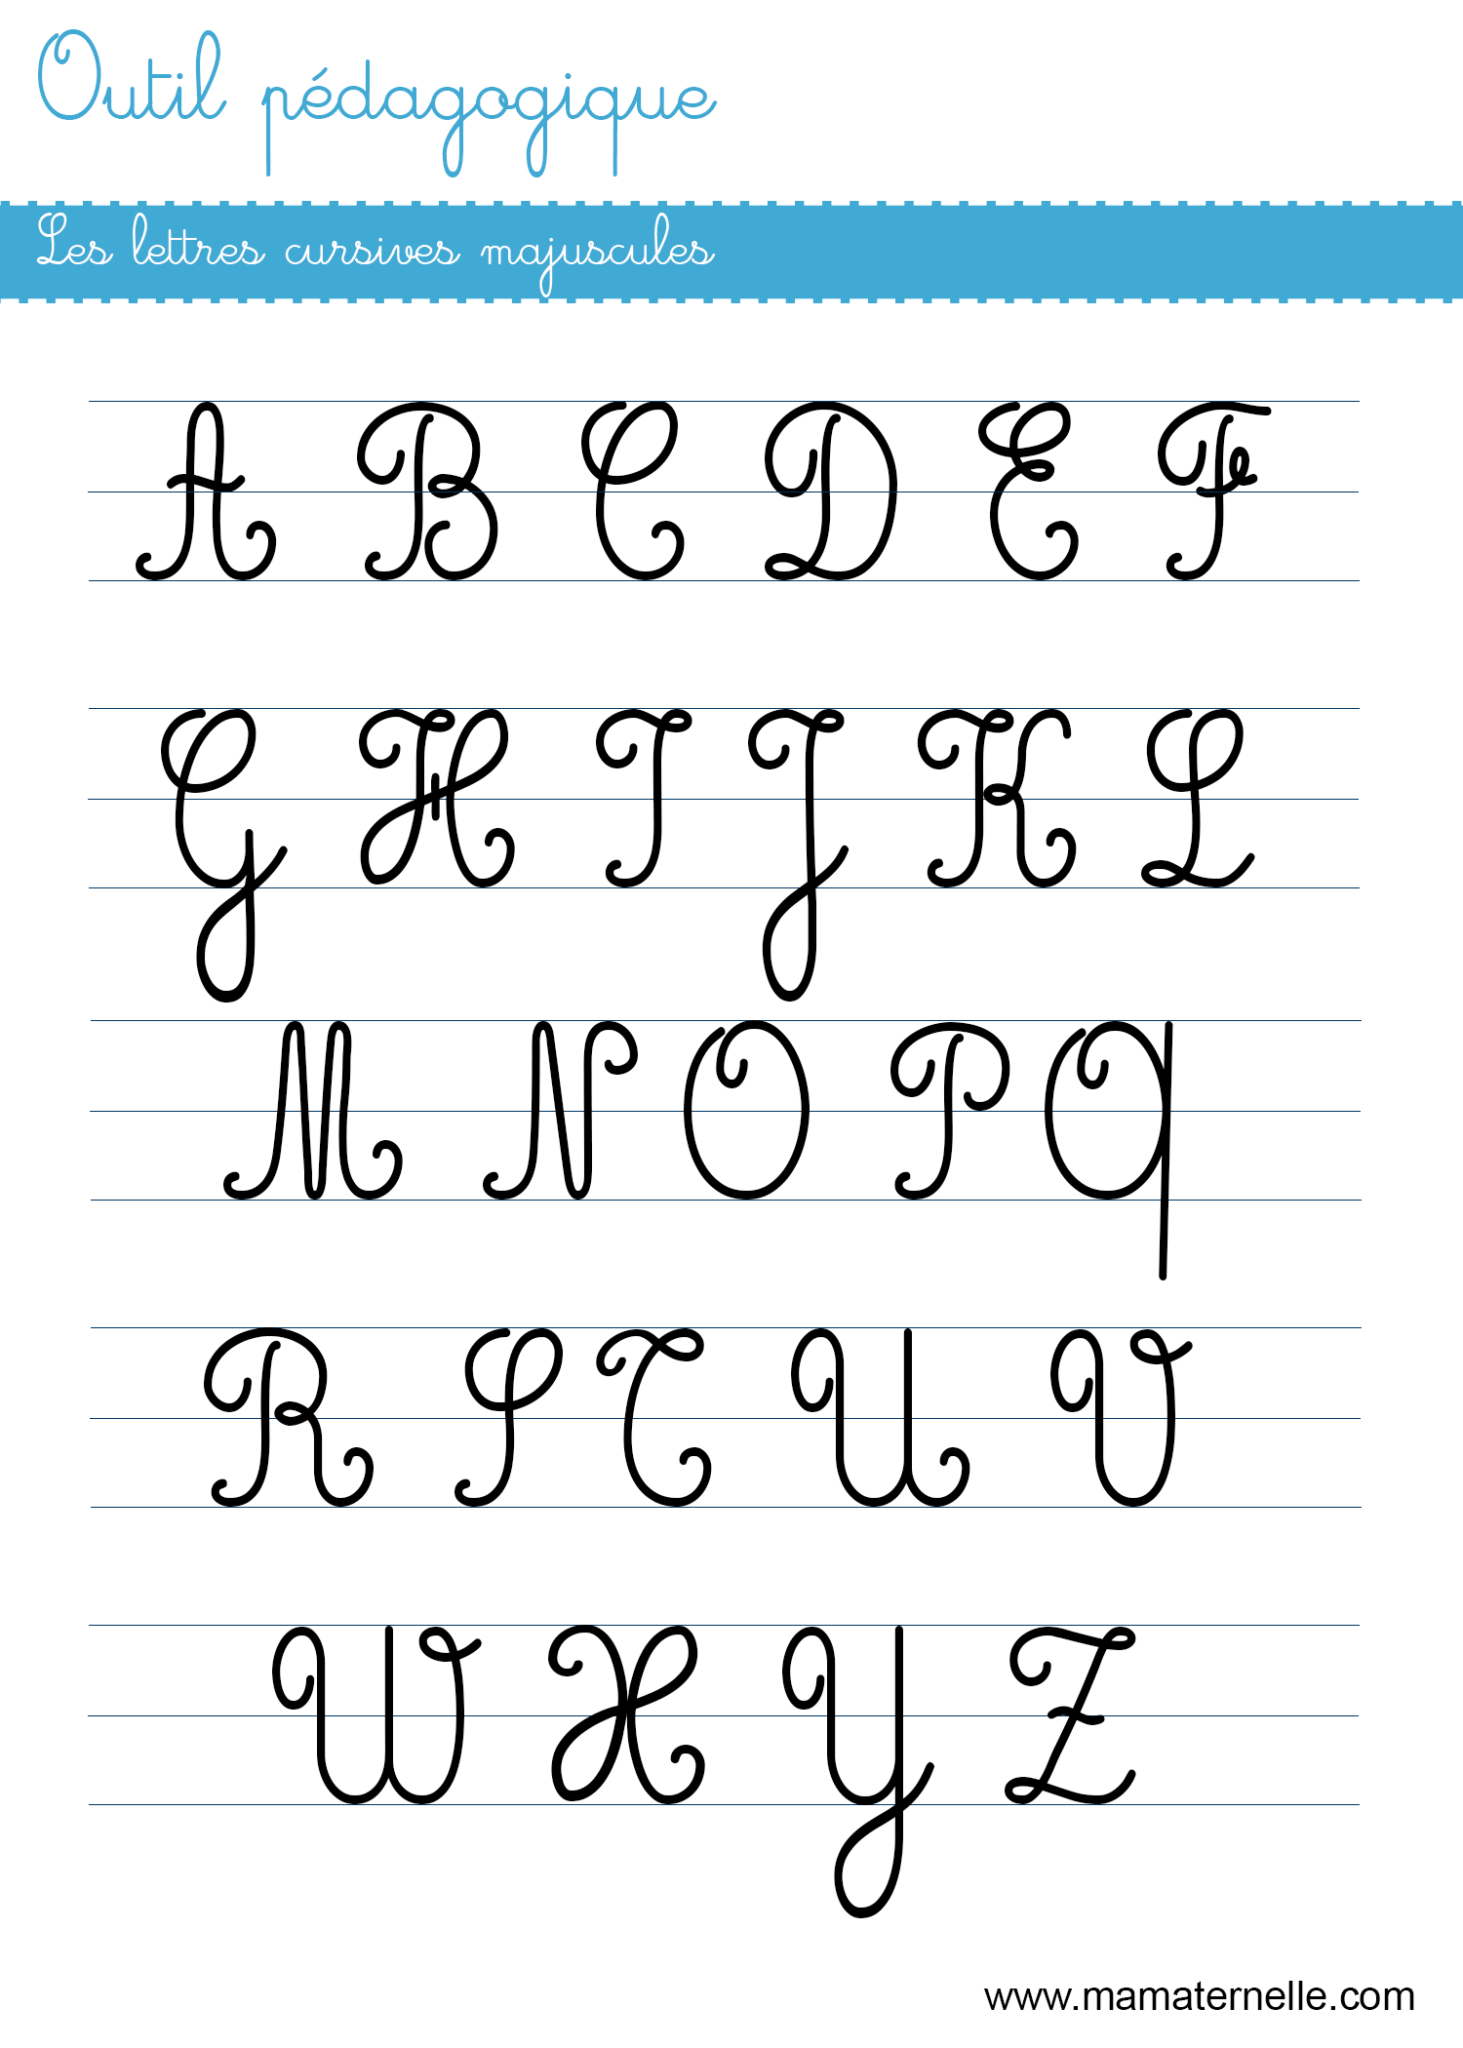 Outil pédagogique
Les lettres cursives majuscules
A B C D E F
G H I J K L
M N O P Q
R S T U V
W X Y Z
www.mamaternelle.com